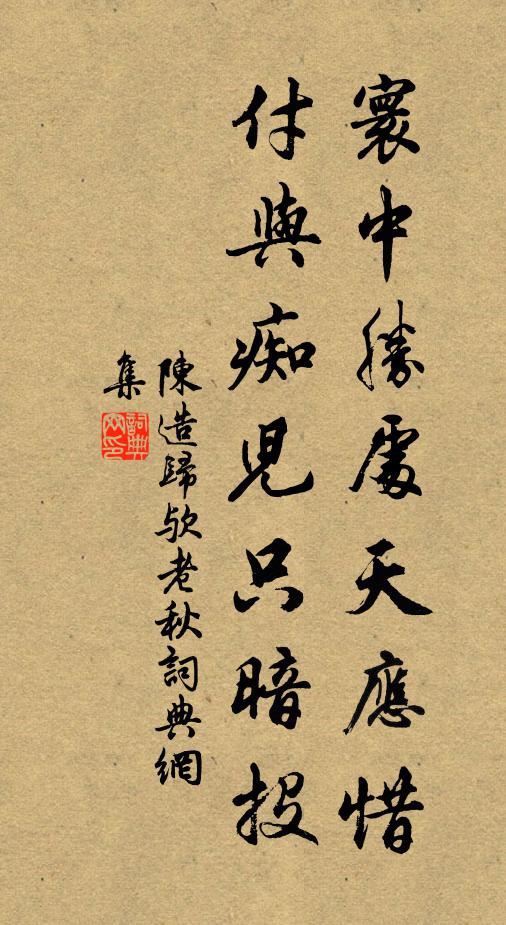 寰中勝處天應惜
付與痴兒只暗投
陳造歸欤老秋詞典網
集
詞典
网印